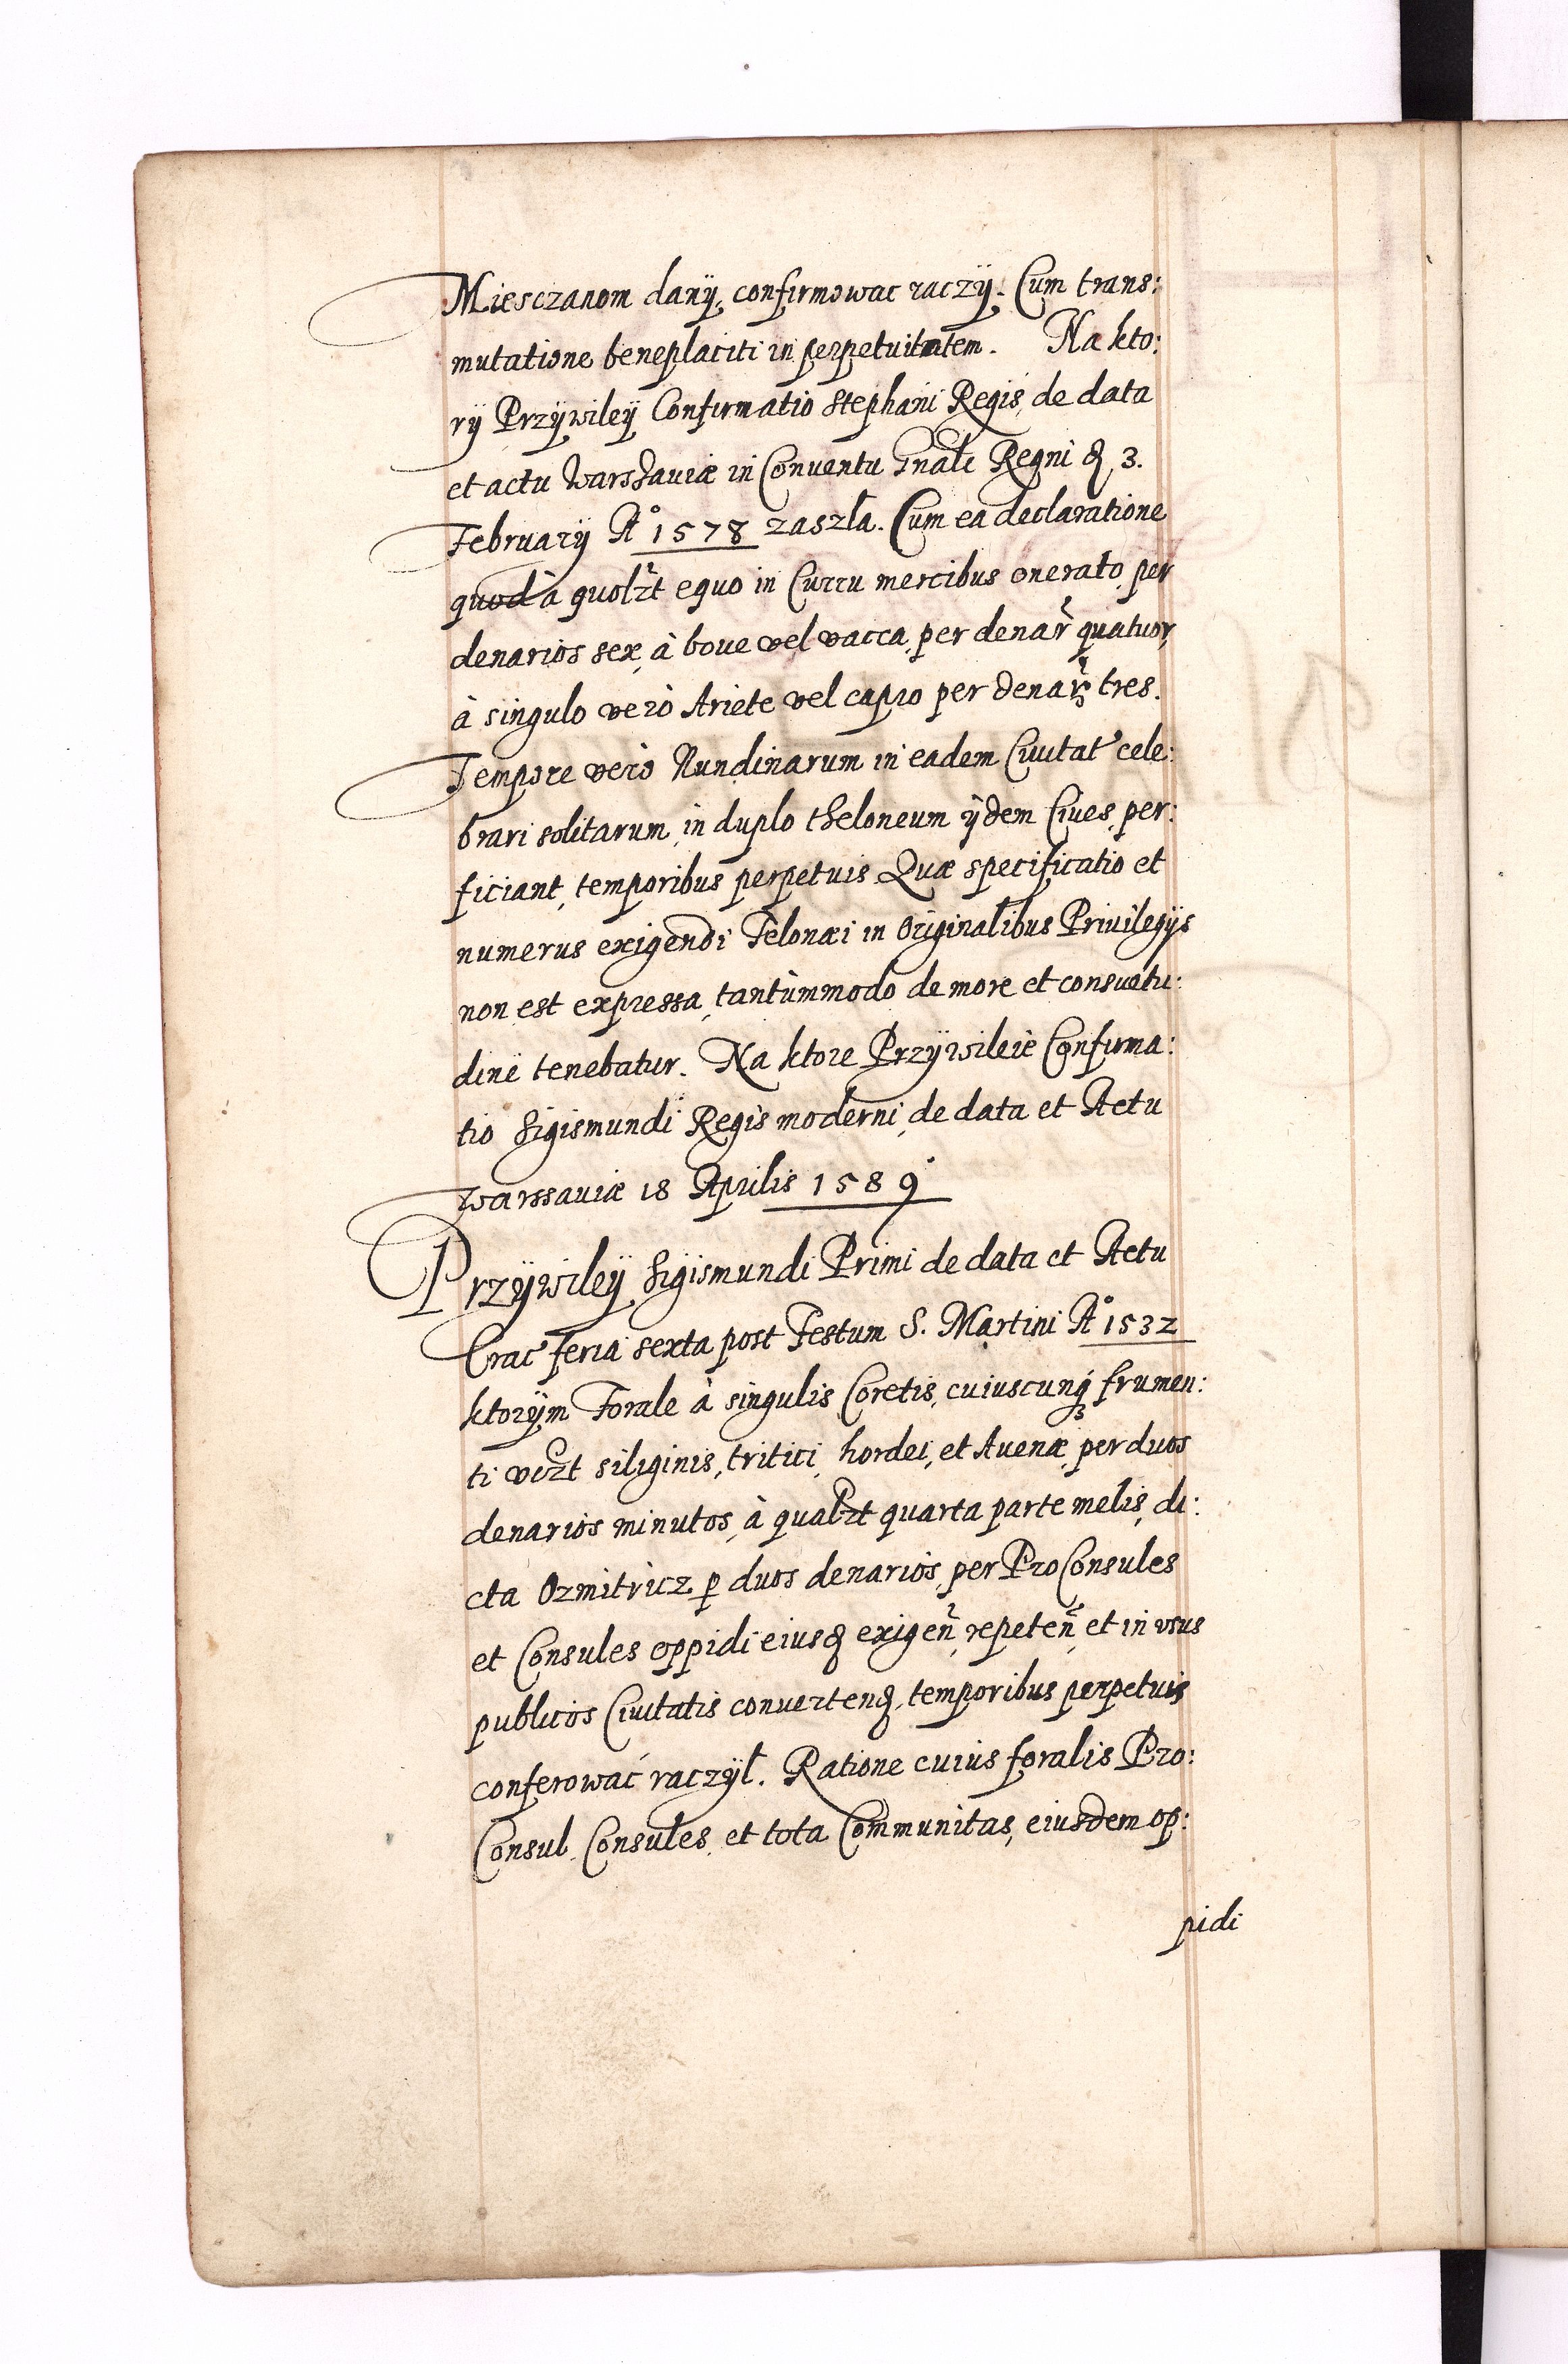 Miesczanom danÿ, confirmowac raczÿ. Cum trans:
mutatione beneplaciti in perpetuitatem. Na kto:
rÿ Przÿwileÿ Confirmatio Stephani Regis, de data
et actu Warschauiæ in Conuentu Gnali Regni ꝺ 3.
Februarÿ A° 1578 zaszła. Cum ea declaratione
quod à quolꝫt equo in Curru mercibus onerato per
denarios sex, à boue vel vacca, per denar̃ quatuor,
à singulo verò Ariete vel capro per denar̃ tres.
Tempore verò Nundinarum in eadem Ciuitat' cele:
brari solitarum, in duplo theloneum ÿdem Ciues, per:
ficiant, temporibus perpetuis. Quæ specificatio et
numerus exigendi Telonæi in Originalibus Priuilegÿs
non est expressa, tantùmmodo de more et consuetu:
dine tenebatur. Na ktore Przÿwileie Confirma:
tio Sigismundi Regis moderni, de data et Actu
Warssauiæ 18 Aprilis 1589
Przÿwileÿ Sigismundi Primi de data et Actu
Crac' feria sexta post Festum S. Martini A° 1532
ktorÿm Forale à singulis Coretis, cuiuscunqꝫ frumen:
ti vizt siliginis, tritici, hordei, et Auenæ, per duos
denarios minutos, à qualꝫt quarta parte melis, di:
cta Ozmitricz ꝑ duos denarios, per ProConsules
et Consules oppidi eiusꝺ exigen̄, repeten̄, et in vsus
publicos Ciuitatis conuertenꝺ, temporibus perpetuis
conferować raczÿł. Ratione cuius foralis Pro:
Consul, Consules, et tota Com̄munitas, eiusdem op:
pidi